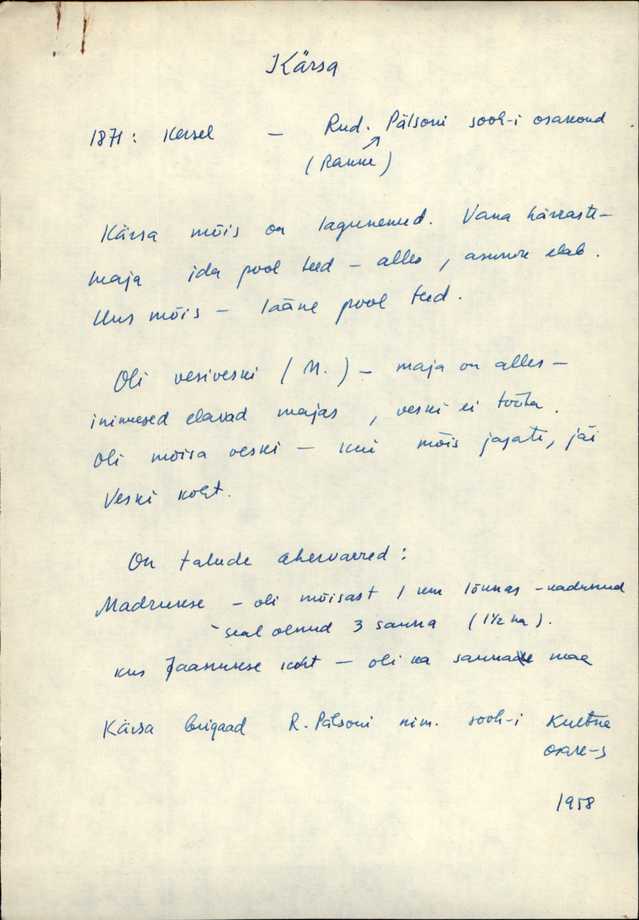 Kärsa
1871: Kersel — Rud. Pälsoni sovh-i osakond
(Ranna)
Kärsa mõis on lagunenud. Vana härraste-
maja ida pool teed – alles, asunik elab.
Uus mõis – lääne pool teed.
Oli vesiveski (M.) – maja on alles –
inimesed elavad majas, veski ei tööta.
Oli mõisa veski – kui mõis jagati, jäi
Veski koht.
On talude ahervared:
Madruse – oli mõisast 1 km lõunas – kadunud
seal olnud 3 sauna (1½ ha).
kus Jaanukese koht – oli ka saunade maa
Kärsa brigaad R. Pälsoni nim. sovh-i
osak-s
1958